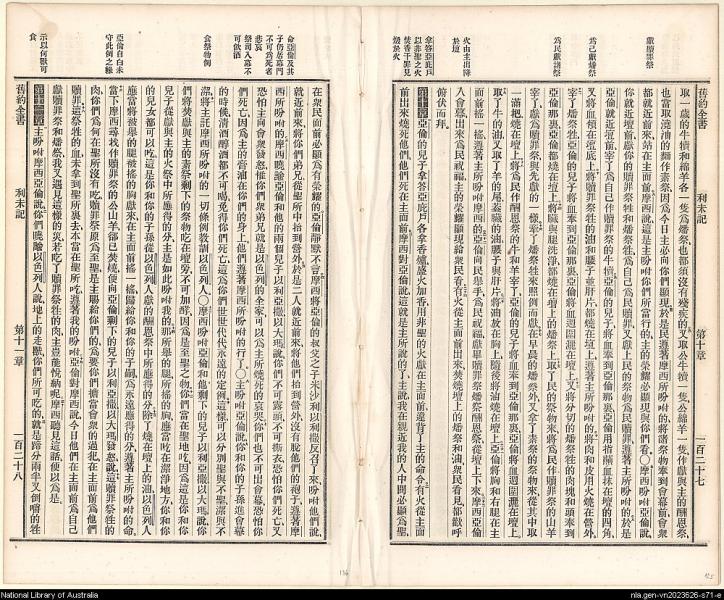 獻贖罪祭
為己獻燔祭
為民獻諸祭
火由主出降
於壇
拿答亞庇戶
以非聖之火
焚香干罪見
燬於火
舊約全書
利未記
第十章
一百二十七
取一歲的牛犢和綿羊各一隻為燔祭也都須沒有殘疾的又取公牛犢一隻公綿羊一隻作獻與主的酬恩祭
也當取澆油的麵作素祭因為今日主必向你們顯現於是民遵著摩西所吩咐的將諸祭物牽到會幕前會衆
都就近前來站在主面前摩西說這是主所吩咐你們所當行的主的榮耀必顯現與你們看〇摩西吩咐亞倫說
你就近壇前獻你的贖罪祭牲和燔祭牲為自己為民贖罪又獻上民的祭物為民贖罪遵著主所吩咐的於是
亞倫就近壇前宰了為自己作贖罪祭的牛犢亞倫的兒子將血奉到亞倫那裏亞倫用指蘸血抹在壇的四角
又將血傾在壇底上將贖罪祭牲的油和腰子並肝片都燒在壇上遵著主所吩咐摩西的將肉和皮用火燒在營外
宰了燔祭牲亞倫的兒子將血奉到亞倫那裏亞倫將血週圍灑在壇上又將分切的燔祭牲的肉塊和頭奉到
亞倫那裏亞倫都燒在壇上將臟與腿洗淨都燒在壇上的燔祭上取了民的祭物來將為民作贖罪祭的山羊
宰了獻為贖罪祭與先獻的一樣牽了燔祭牲來照例而獻在早晨的燔祭外又拿了素祭的祭物來從其中取
一滿把燒在壇上將為民作酬恩祭的牛和羊宰了亞倫的兒子將血奉到亞倫那裏亞倫將血週圍灑在壇上
取了牛的油又取了羊的尾遮臟的油腰子與肝片將油放在胸上隨後將油燒在壇上亞倫將胸和右腿在主
面前搖一搖遵著主所吩咐摩西的亞倫向民舉手為民祝福獻畢贖罪祭燔祭酬恩祭從壇上下來摩西亞倫
入會幕出來為民祝福主的榮耀顯現給衆民看有火從主面前出來焚燒壇上的燔祭和油衆民看見都歡呼
俯伏而拜
第十章亞倫的兒子拿答亞庇戶各拿香爐盛火加香用非聖的火獻在主面前違背了主的命令有火從主面
前出來燒死他們他們死在主面前摩西對亞倫說這就是主所說的了主說我在親近我的人中間必顯為聖
命亞倫及其
子仍居幕門
不可為死者
悲哀
祭司入幕不
可飲酒
食祭物例
亞倫自白未
守此例之緣
示以何獸可
食
在衆民面前必顯為有榮耀的亞倫靜默不言摩西將亞倫的叔父之子米沙利以利撒反召了來吩咐他們說
就近前來將你們弟兄從聖所中抬到營外於是二人就近前來將他們抬到營外沒有脫他們的袍子遵著摩
西所吩咐的摩西曉諭亞倫和他的兩個兒子以利亞撒以大瑪說你們不可露頭不可撕衣恐怕你們死亡又
恐怕主向會衆發怒惟你們衆弟兄就是以色列的全家可以為主所燒死的哀哭你們也不可出會幕恐怕你
們死亡因為主的膏油在你們的身上他們遵著摩西所吩咐的行了〇主吩咐亞倫說你和你的子孫進會幕
的時候清酒醇酒都不可喝免得你們死亡這為你們世世代代永遠的定例這樣可以分別聖與不聖潔與不
潔將主託摩西所吩咐的一切條例教訓以色列人〇摩西吩咐亞倫和他剩下的兒子以利亞撒以大瑪說你
們將焚獻與主的素祭剩下的祭物吃在壇旁不可加酵因為是至聖之物你們當在聖地吃因為這是你和你
兒子從獻與主的火祭中所應得的分主是如此吩咐我的所搖的胸所舉的腿你們當吃在潔淨地方你和你
的兒子女都可以吃這是你和你的子孫從以色列人獻的酬恩祭中所應得的分除了燒在壇上的油以色列人
應當將被舉的腿被搖的胸獻來在主面前搖一搖歸給你和你的子嗣為永遠應得的分遵著主所吩咐的命
當下摩西尋找作贖罪祭的公山羊卻已焚燒便向亞倫剩下的兒子以利亞撒以大瑪發怒說這贖罪祭牲的
肉你們為何在聖所沒有吃贖罪祭原為至聖是主賜給你們的為要你們擔當會衆的過犯在主面前為他們
贖罪這祭牲的血未拿到聖所裏去本當在聖所吃遵著我的吩咐亞倫對摩西說今日他們在主面前為自己
獻贖罪祭和燔祭我又遇見這樣的災來吃了贖罪祭牲的肉主豈能悅納呢摩西聽見這話便以為是
第十一章主吩咐摩西亞倫說你們曉諭以色列人說地上的走獸你們所可吃的就是蹄分兩半又倒嚼的牲
舊約全書
利未記
第十一章
一百二十八
National Library of Australia
nla.gen-vn2023626-s71-e